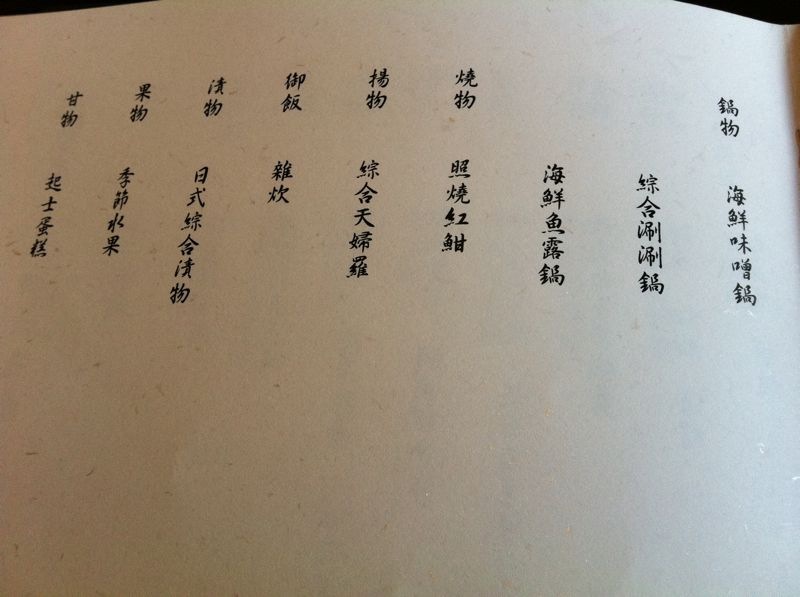 鍋物
海鮮味噌鍋
綜合涮涮鍋
海鮮魚露鍋
燒物
照燒紅魽
揚物
綜合天婦羅
御飯
雜炊
漬物
日式綜合漬物
果物
季節水果
甘物
起士蛋糕